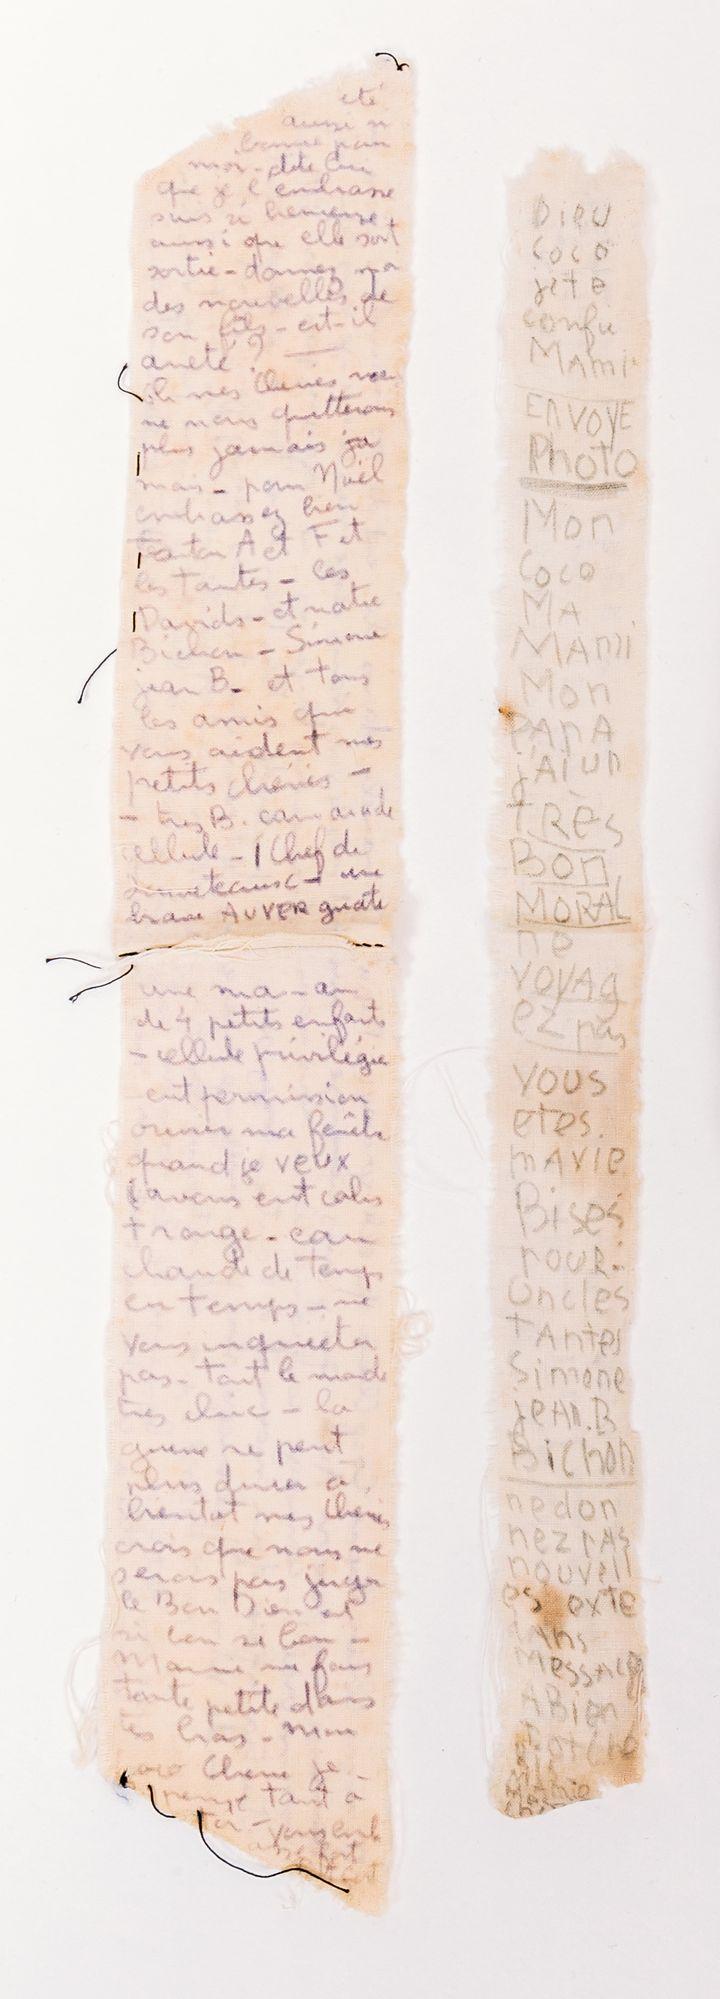 eté
aussi si
bonne pour
moi - dite lui
que je l'embrasse
suis si heureuse
aussi que elle soit
sortie - donnez moi
des nouvelles de
son fils - est-il
arreté ?
Oh mes Cheries nous
ne nous quitterons
plus jamais ja
mais - pour Noël
embrassez bien
Tonton A et F et
les tantes - les
Davids - et notre
Bichon - Simone
jean B. et tous
les amis qui
vous aident mes
petits chéries -
- tres B. camarade
cellule - 1 Chef de
une
brave AUVERgnate
une ma-an
de 4 petits enfants
- cellule privilégie
- ent permission
ouvrir ma fenêtre
quand je veux
avons ent colis
+ rouge - eau
chaude de temps
en temps - ne
vous inquietez
pas - tout le monde
tres chic - la
guerre ne peut
plus durer à
bientot mes Cheries
crois que nous ne
serons pas jugés
le Bon Dieu est
si bon si bon -
Mamie me fais
toute petite dans
tes bras - Mon
coco Cherie je
pense tant à
toi - vous emb
fort
DieU
coco
jete
confie
MAMi
ENVOYE
Photo
Mon
Coco
MA
MAMi
Mon
PAPA
j'Ai un
tRès
Bon
MORAL
ne
VOYAG
ez pas
VOUS
etes.
mAVie
Bises
POUR:
Oncles
tAntes
Simone
jeAn.B
Bichon
nedon
nez PAS
nouvell
es exte
dAns
MessAge
ABien